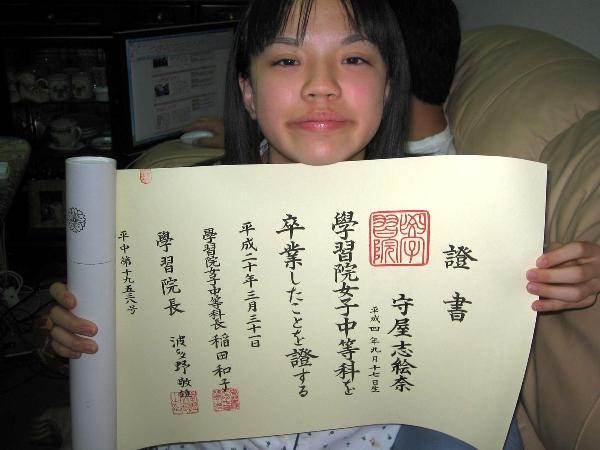 證書
學習院
守屋志絵奈
平成四年九月十七日生
學習院女子中等科を
卒業したことを證する
平成二十年三月三十一日
學習院女子中等科長 稲田和子
學習院長 波多野敬雄
平中第十九五六号